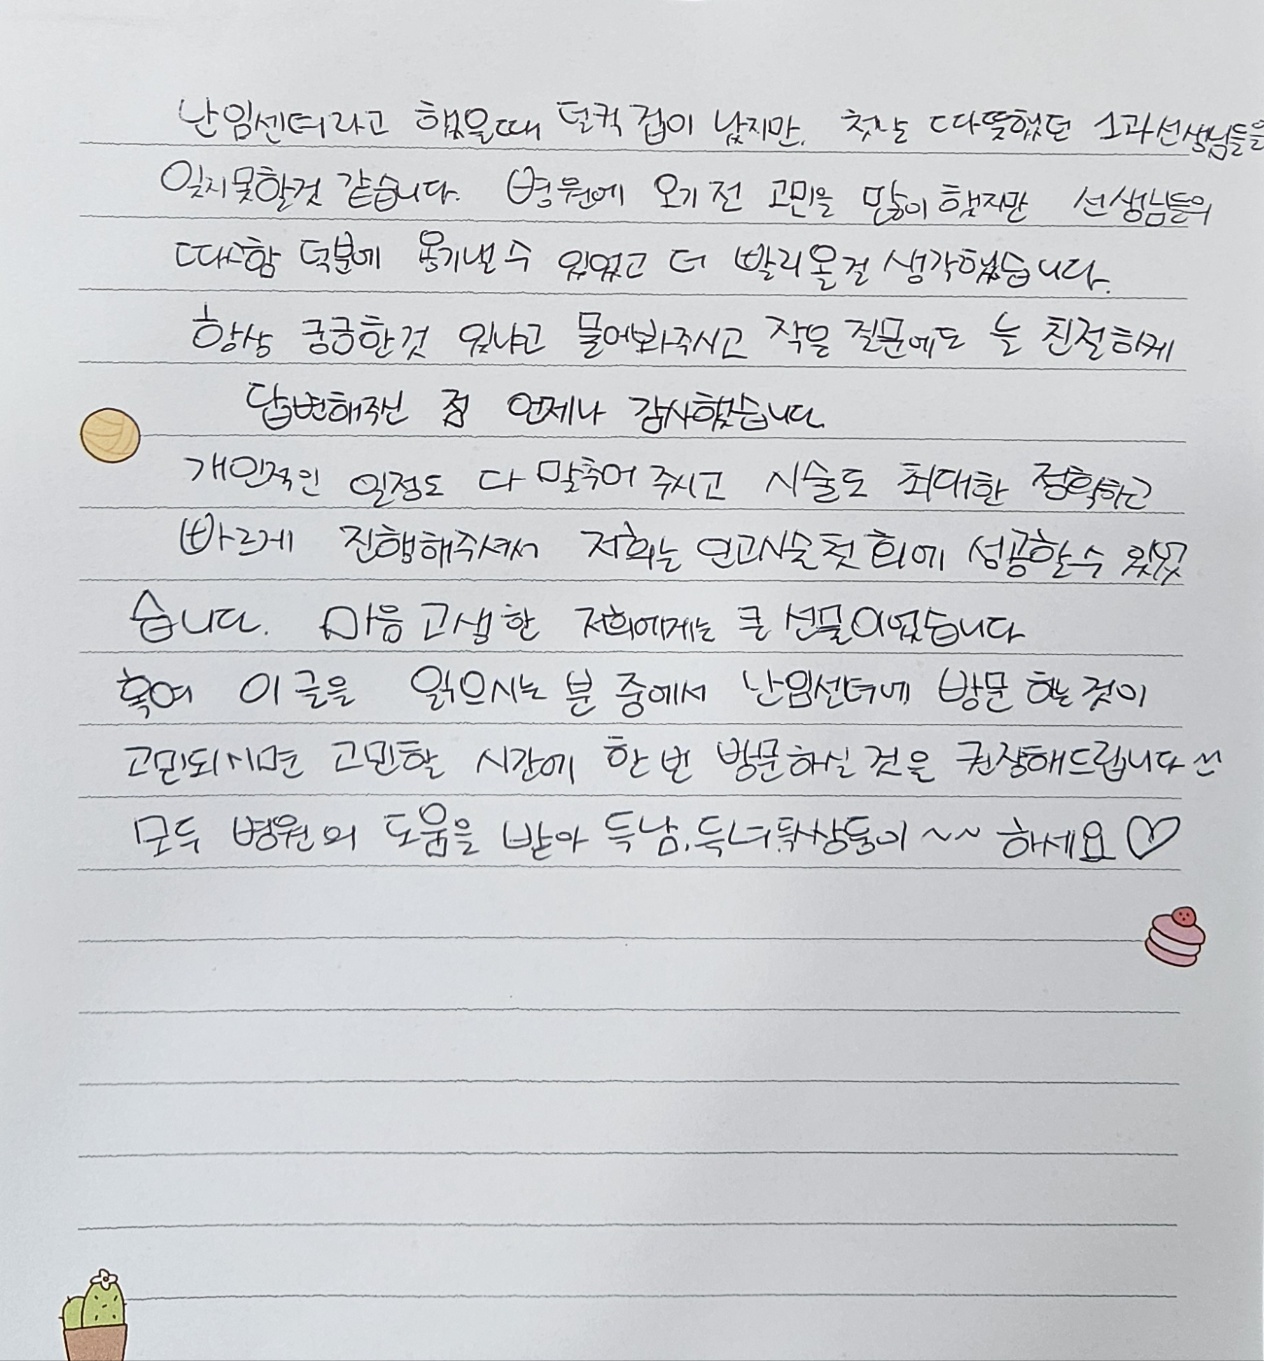 난임센터라고 했을때 덜컥 겁이 났지만, 첫날 따뜻했던 1과선생님들을
잊지못할것 같습니다. 병원에 오기 전 고민을 많이 했지만 선생님들의
따스함 덕분에 용기낼 수 있었고 더 빨리올걸 생각했습니다.
항상 궁금한것 있냐고 물어봐주시고 작은 질문에도 늘 친절하게
답변해주신 점 언제나 감사했습니다.
개인적인 일정도 다 맞추어 주시고 시술도 최대한 정확하고
빠르게 진행해주셔서 저희는 인공시술 첫 회에 성공할수 있었
습니다. 마음고생한 저희에게는 큰 선물이었습니다
혹여 이 글을 읽으시는 분 중에서 난임센터에 방문 하는 것이
고민되시면 고민할 시간에 한 번 방문하실 것을 권장해드립니다 ^^
모두 병원의 도움을 받아 득남, 득녀, 득쌍둥이 ~~ 하세요♡